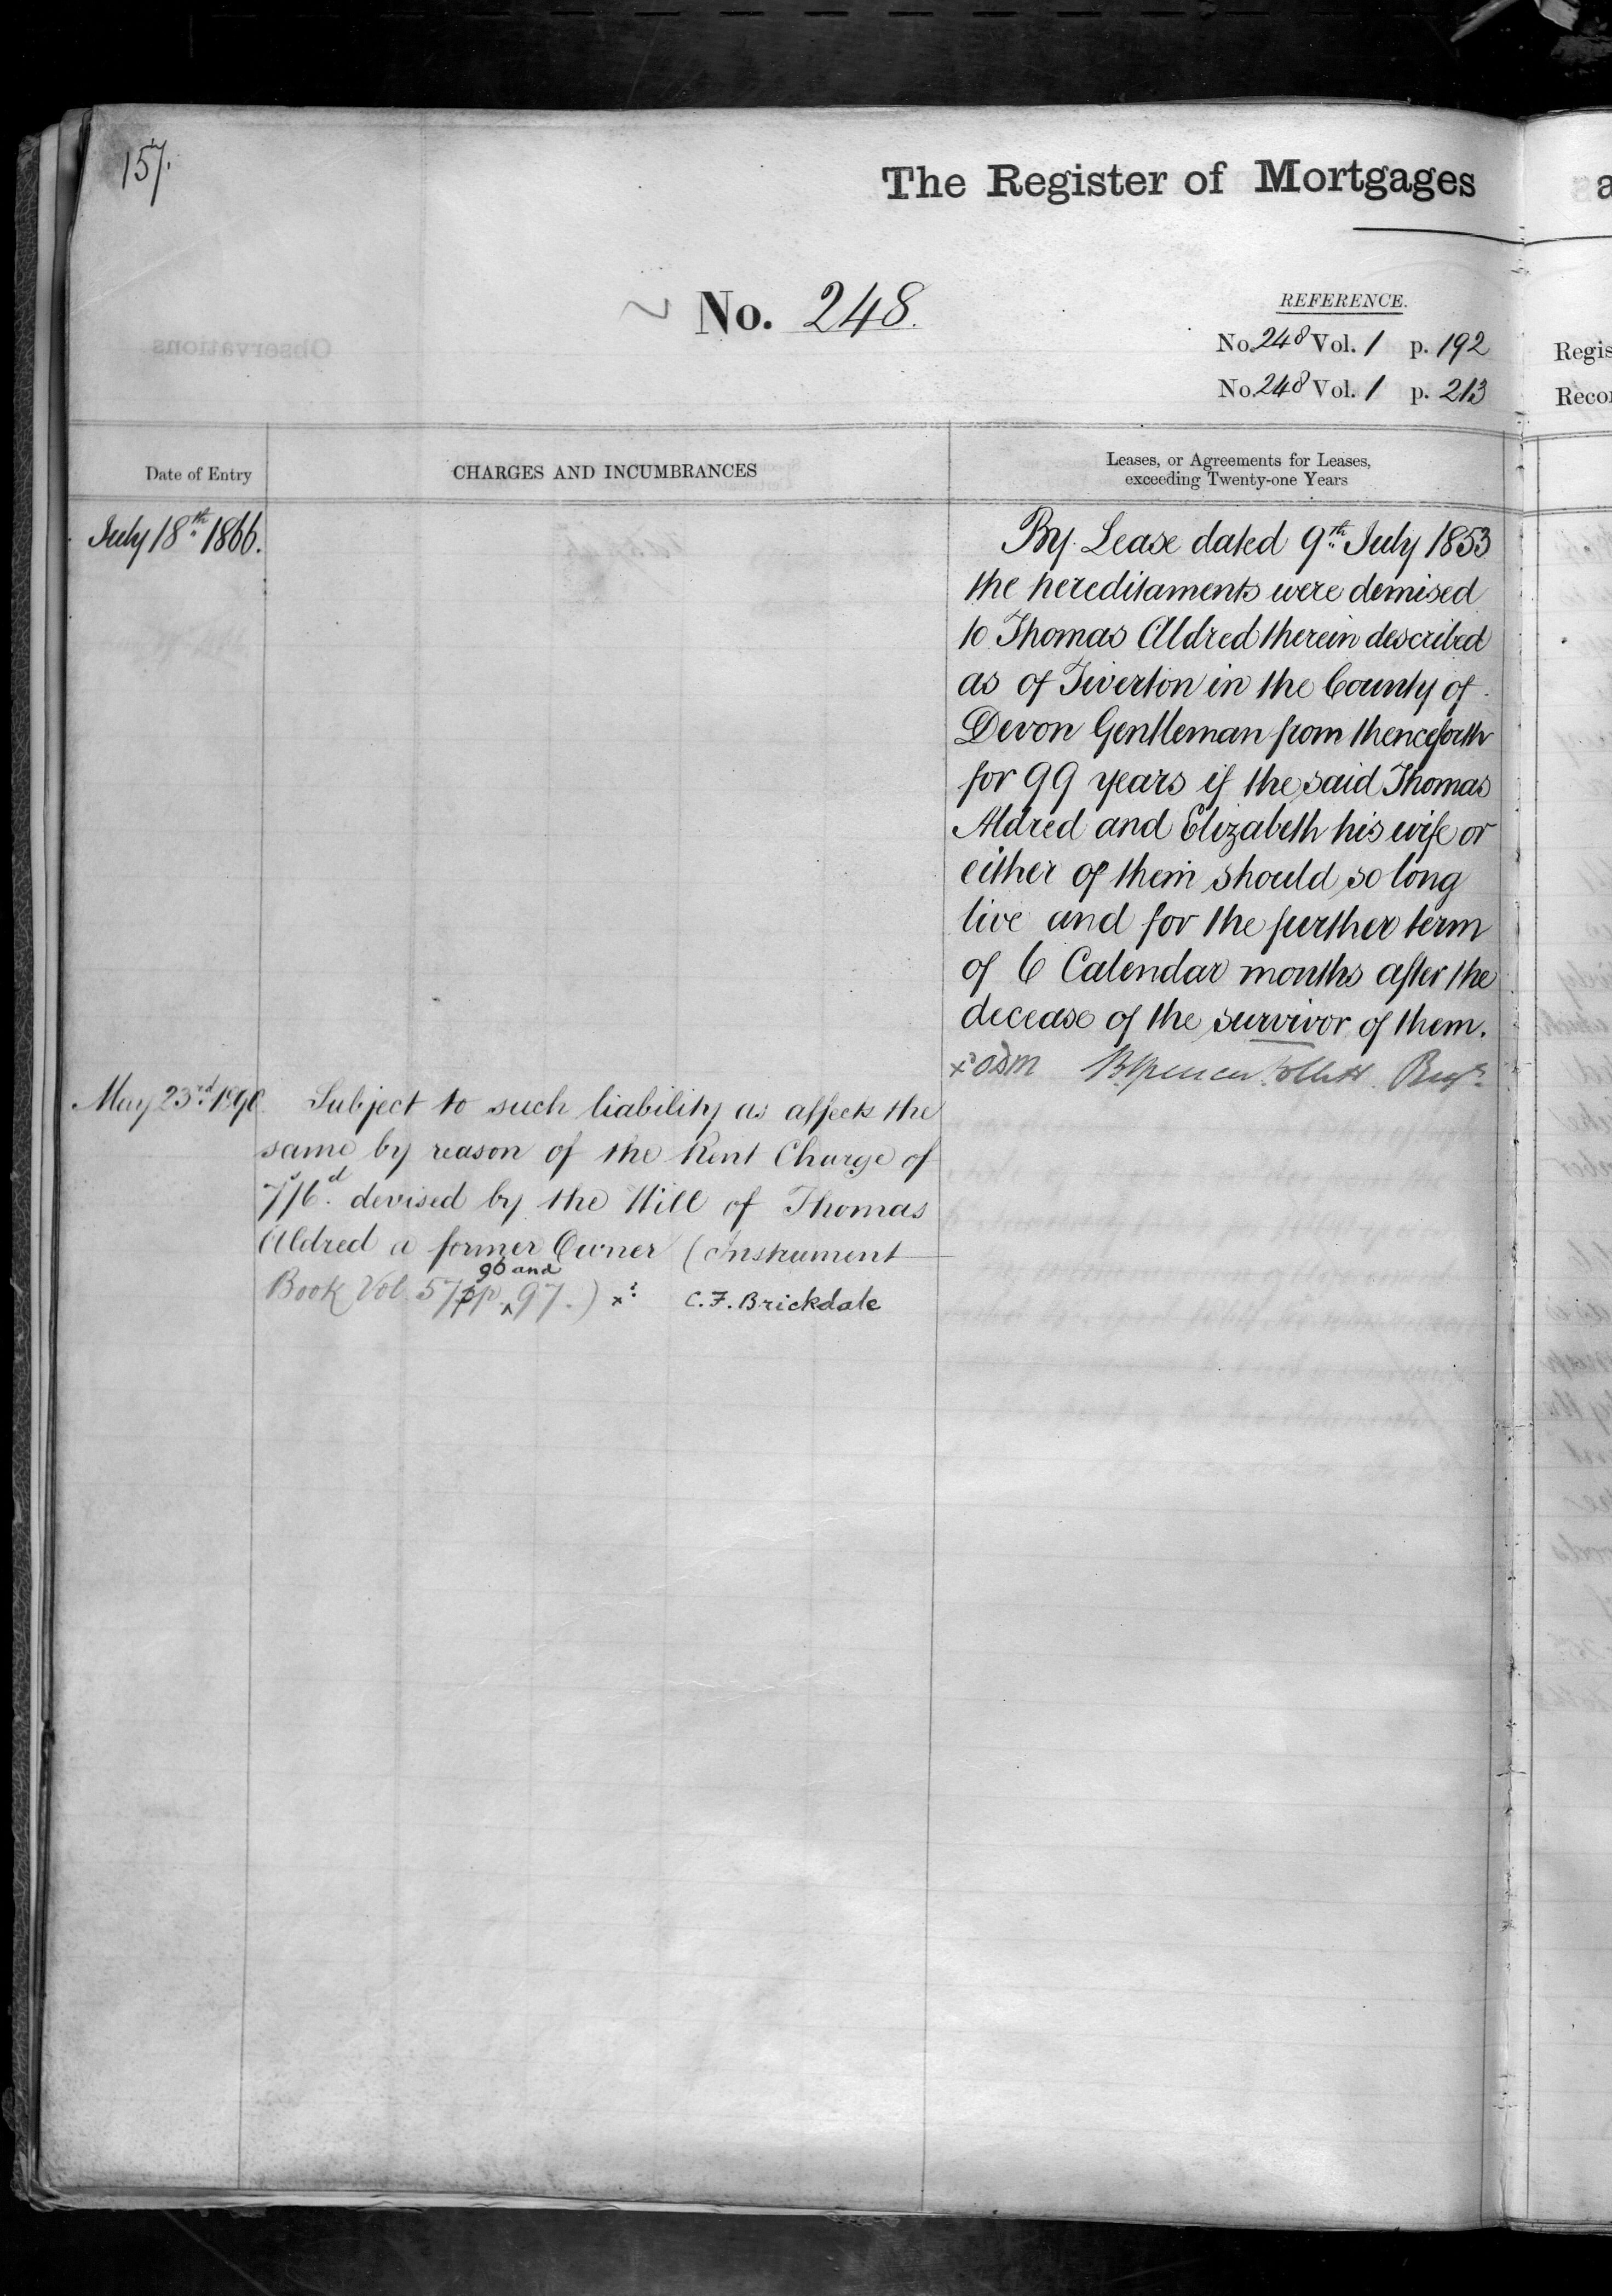 157.
The Register of Mortgages
No. 248.
REFERENCE.
No. 248 Vol. 1 p. 192
No. 248 Vol. 1 p. 213
Date of Entry
CHARGES AND INCUMBRANCES
Leases, or Agreements for Leases,
exceeding Twenty-one Years
July 18th 1866.
By Lease dated 9th July 1853
the hereditaments were demised
to Thomas Aldred therein described
as of Tiverton in the County of
Devon Gentleman from thenceforth
for 99 years if the said Thomas
Aldred and Elizabeth his wife or
either of them should so long
live and for the further term
of 6 Calendar months after the
decease of the survivor of them.
B Spencer Follett Regr.
May 23rd
Subject to such liability as affects the
same by reason of the Rent Charge of
7s/6d. devised by the Will of Thomas
Aldred a former Owner (Instrument
Book Vol. 57 pp 96 and 97.) x: C.F. Brickdale
Observations
Regis
Recor